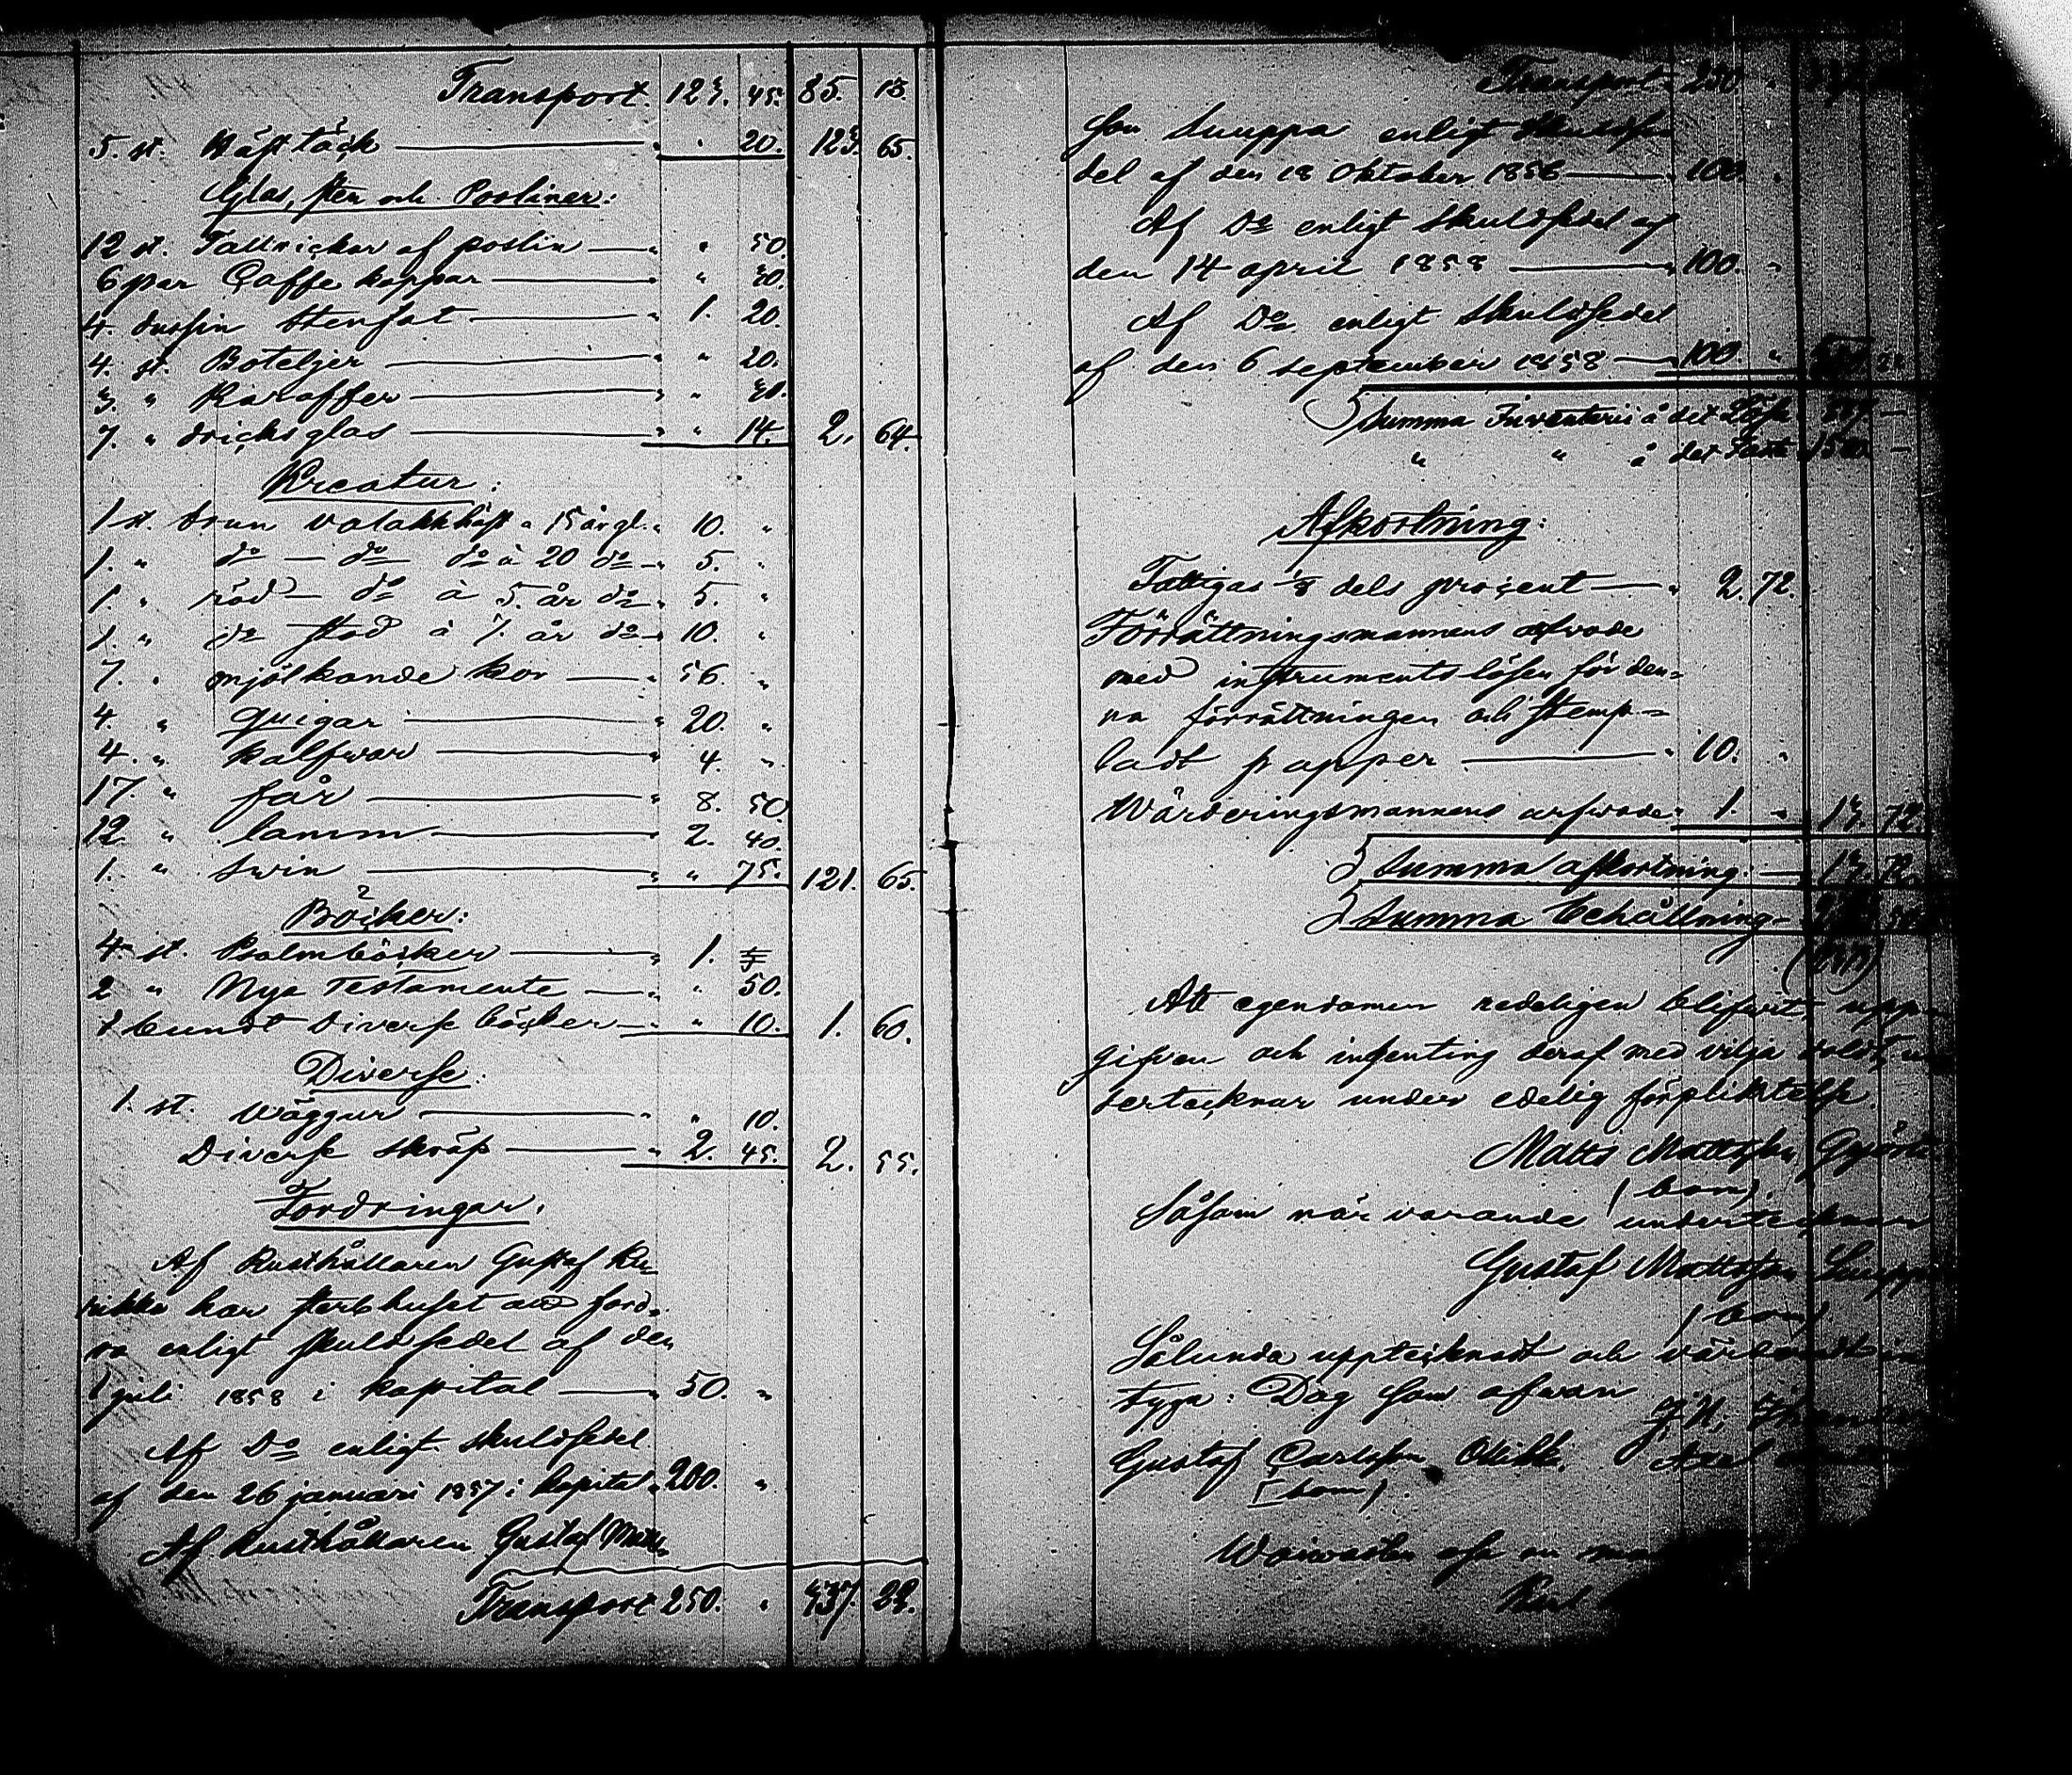 Transport. 123. 45. 85. 13.
5. st. Häst täck — " " 20. 123. 65.
Glas, sten och Posliner:
12 st. Tallrickar af poslin — " " 50.
6 par Caffe koppar — " " 30.
4. dussin Stenfat — " 1. 20.
4. st. Boteljer — " " 20.
3. " Karaffer — " " 30.
7. " dricksglas — " " 14. 2. 64.
Kreatur:
1 st. brun valakhäst a 15 år gl. " 10. "
1. " do — do do à 20 do — " 5. "
1. " röd — do à 5. år do " 5. "
1. " do sto à 7. år do " 10. "
7. " mjölkande kor — " 56. "
4. " quigar — " 20. "
4. " kalfwar — " 4. "
17. " får — " 8. 50.
12. " lamm — " 2. 40.
1. " swin — " " 75. 121. 65.
Böcker:
4 st. Psalmböcker — " 1.
2 " Nya Testamente — " " 50.
1 bundt Diverse böcker — " " 10. 1. 60.
Diverse:
1. st. Wäggur — " " 10.
Diverse skräp — " 2. 45. 2. 55.
Fordringar.
Af Rusthållaren Gustaf
har sterbhuset att ford-
ra enligt skuldsedel af den
1 juli 1858 i kapital — " 50. "
Af Do enligt skuldsedel
af den 26 januari 1857 i kapital " 200. "
Af Rusthållaren Gustaf Matts-
Transport 250. " 337. 22.
Transport 250. "
son Suuppa enligt skuldse-
del af den 18 Oktober 1856 — " 100 "
Af Do enligt skuldsedel af
den 14 april 1858 — " 100. "
Af Do enligt skuldsedel
af den 6 september 1858 — " 100. "
Summa Inventerii å det Lösa
" " å det Fasta
Afkortning:
Fattigas 1/8 dels procent — " 2. 72.
Förrättningsmannens arfvode
med instruments lösen för den-
na förrättningen och stemp-
ladt papper — " 10. "
Wärderingsmannens arfvode " 1. " 13. 72.
Summa afkortning — 13. 72.
Summa behållning —
Att egendomen redeligen blifvit upp-
gifven och ingenting deraf med vilja
tertecknar under edelig förpliktelse.
Matts Mattsson
(bom)
Såsom närvarande undertecknar
Gustaf Mattsson
(bom)
Sålunda upptecknadt och värderadt
tyga: Dag som ofwan
J. H.
Gustaf Carlsson Axel
(bom)